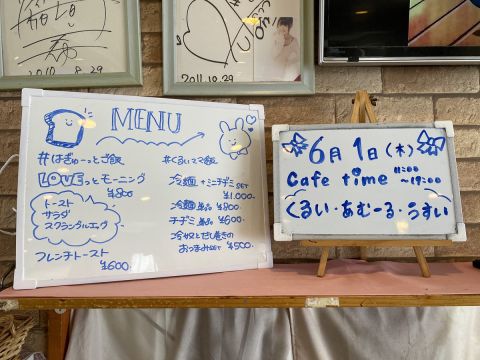 2010.8.29
2011.10.29
MENU
#はぎゅーっとご飯
LOVEっとモーニング
¥800
トースト
サラダ
スクランブルエッグ
フレンチトースト
¥600-
#くるいママ飯
冷麺+ミニチヂミSET
¥1,000-
冷麺 単品 ¥800-
チヂミ 単品 ¥500-
冷奴とだし巻きの
おつまみset ¥500-
6月1日(木)
Cafe time 11:00
~17:00
くるい・あむーる・うすい